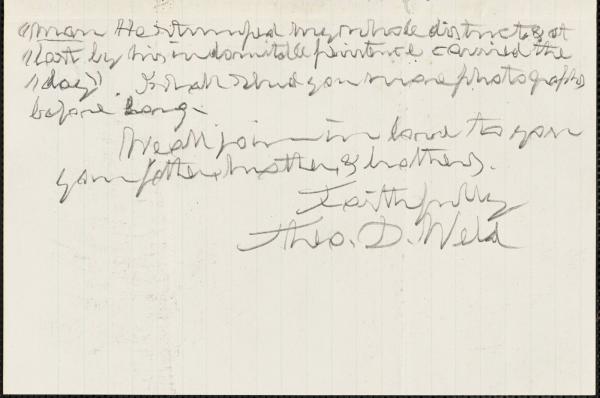 "man He stumped my whole district & at
"last by his indomitable persistence carried the
"day". I shall send you more photographs
before long.
We all join in love to you
your father, mother, & brothers.
Faithfully
Theo. D. Weld